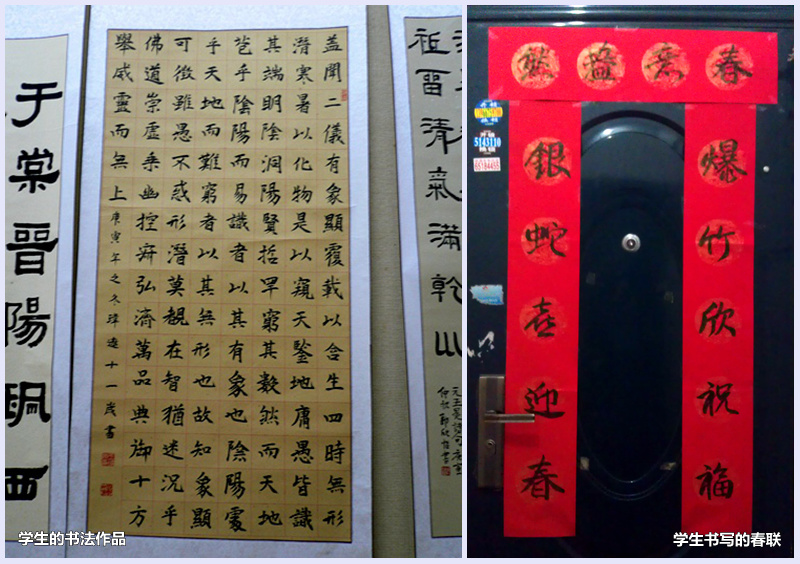 于棠晉陽
盖聞二儀有象顯覆載以含生四時無形
潛寒暑以化物是以窺天鑒地庸愚皆識
其端明陰洞陽賢哲罕窮其數然而天地
苞乎陰陽而易識者以其有象也陰陽處
乎天地而難窮者以其無形也故知象顯
可徵雖愚不惑形潛莫覩在智猶迷況乎
佛道崇虛乘幽控寂弘濟萬品典御十方
舉威靈而無上
庚寅年之冬十一歲書
留清氣滿乾
学生的书法作品
春意盎然
爆竹欣祝福
銀蛇喜迎春
5143110
学生书写的春联